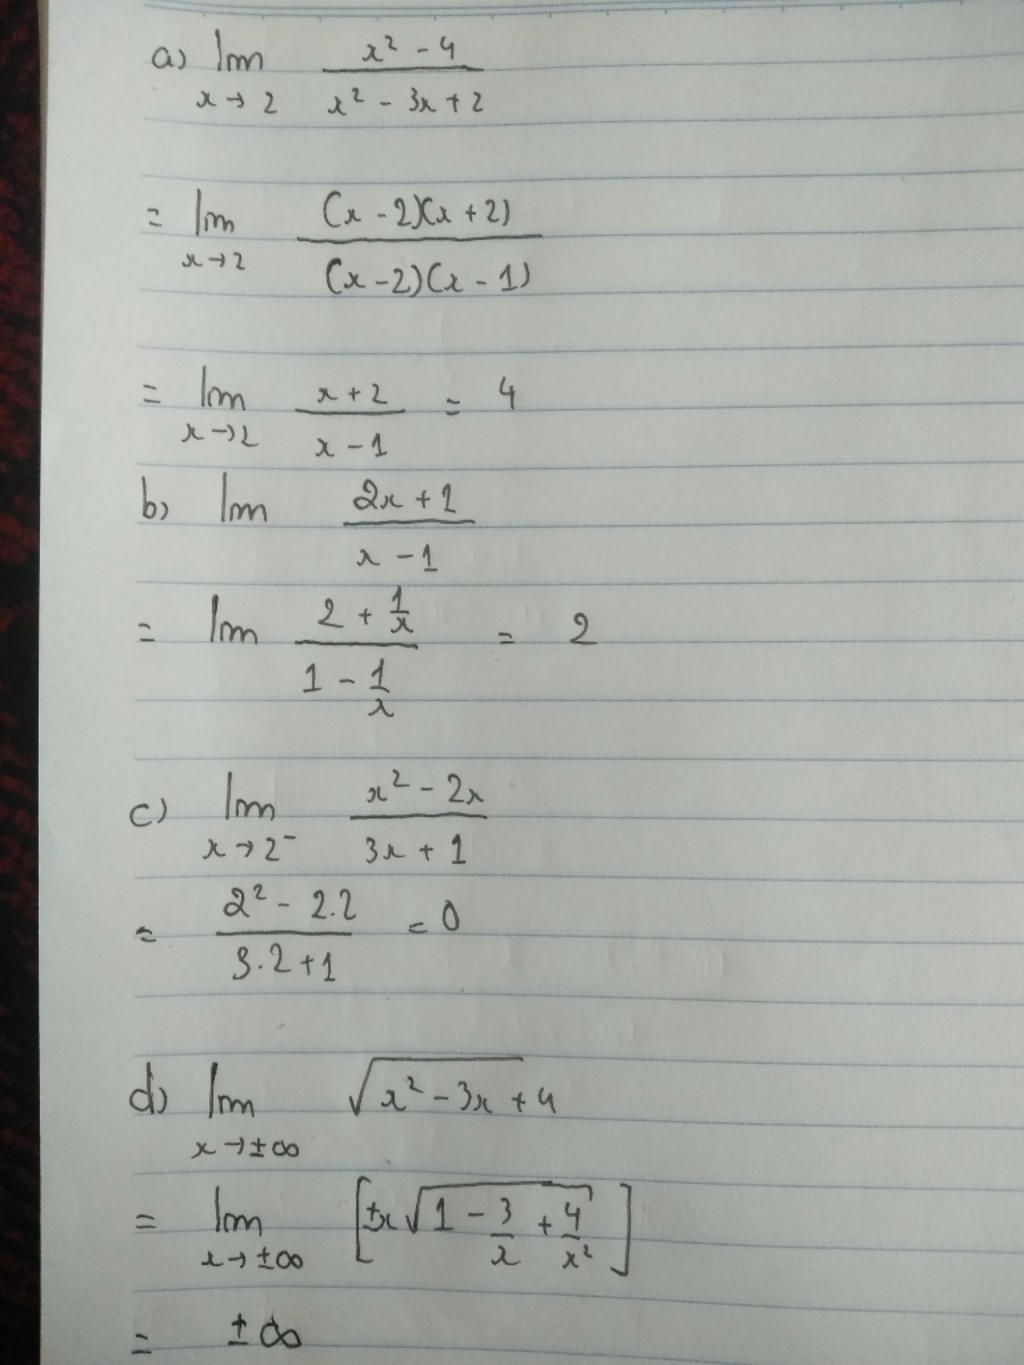 a) lim x² - 4
x → 2 x² - 3x + 2
= lim (x - 2)(x + 2)
x → 2 (x - 2)(x - 1)
= lim x + 2 = 4
x → 2 x - 1
b) lim 2x + 1
x - 1
= lim 2 + 1/x = 2
1 - 1/x
c) lim x² - 2x
x → 2⁻ 3x + 1
= 2² - 2.2 = 0
3.2 + 1
d) lim √x² - 3x + 4
x → ±∞
= lim [±x √1 - 3/x + 4/x²]
x → ±∞
= ±∞